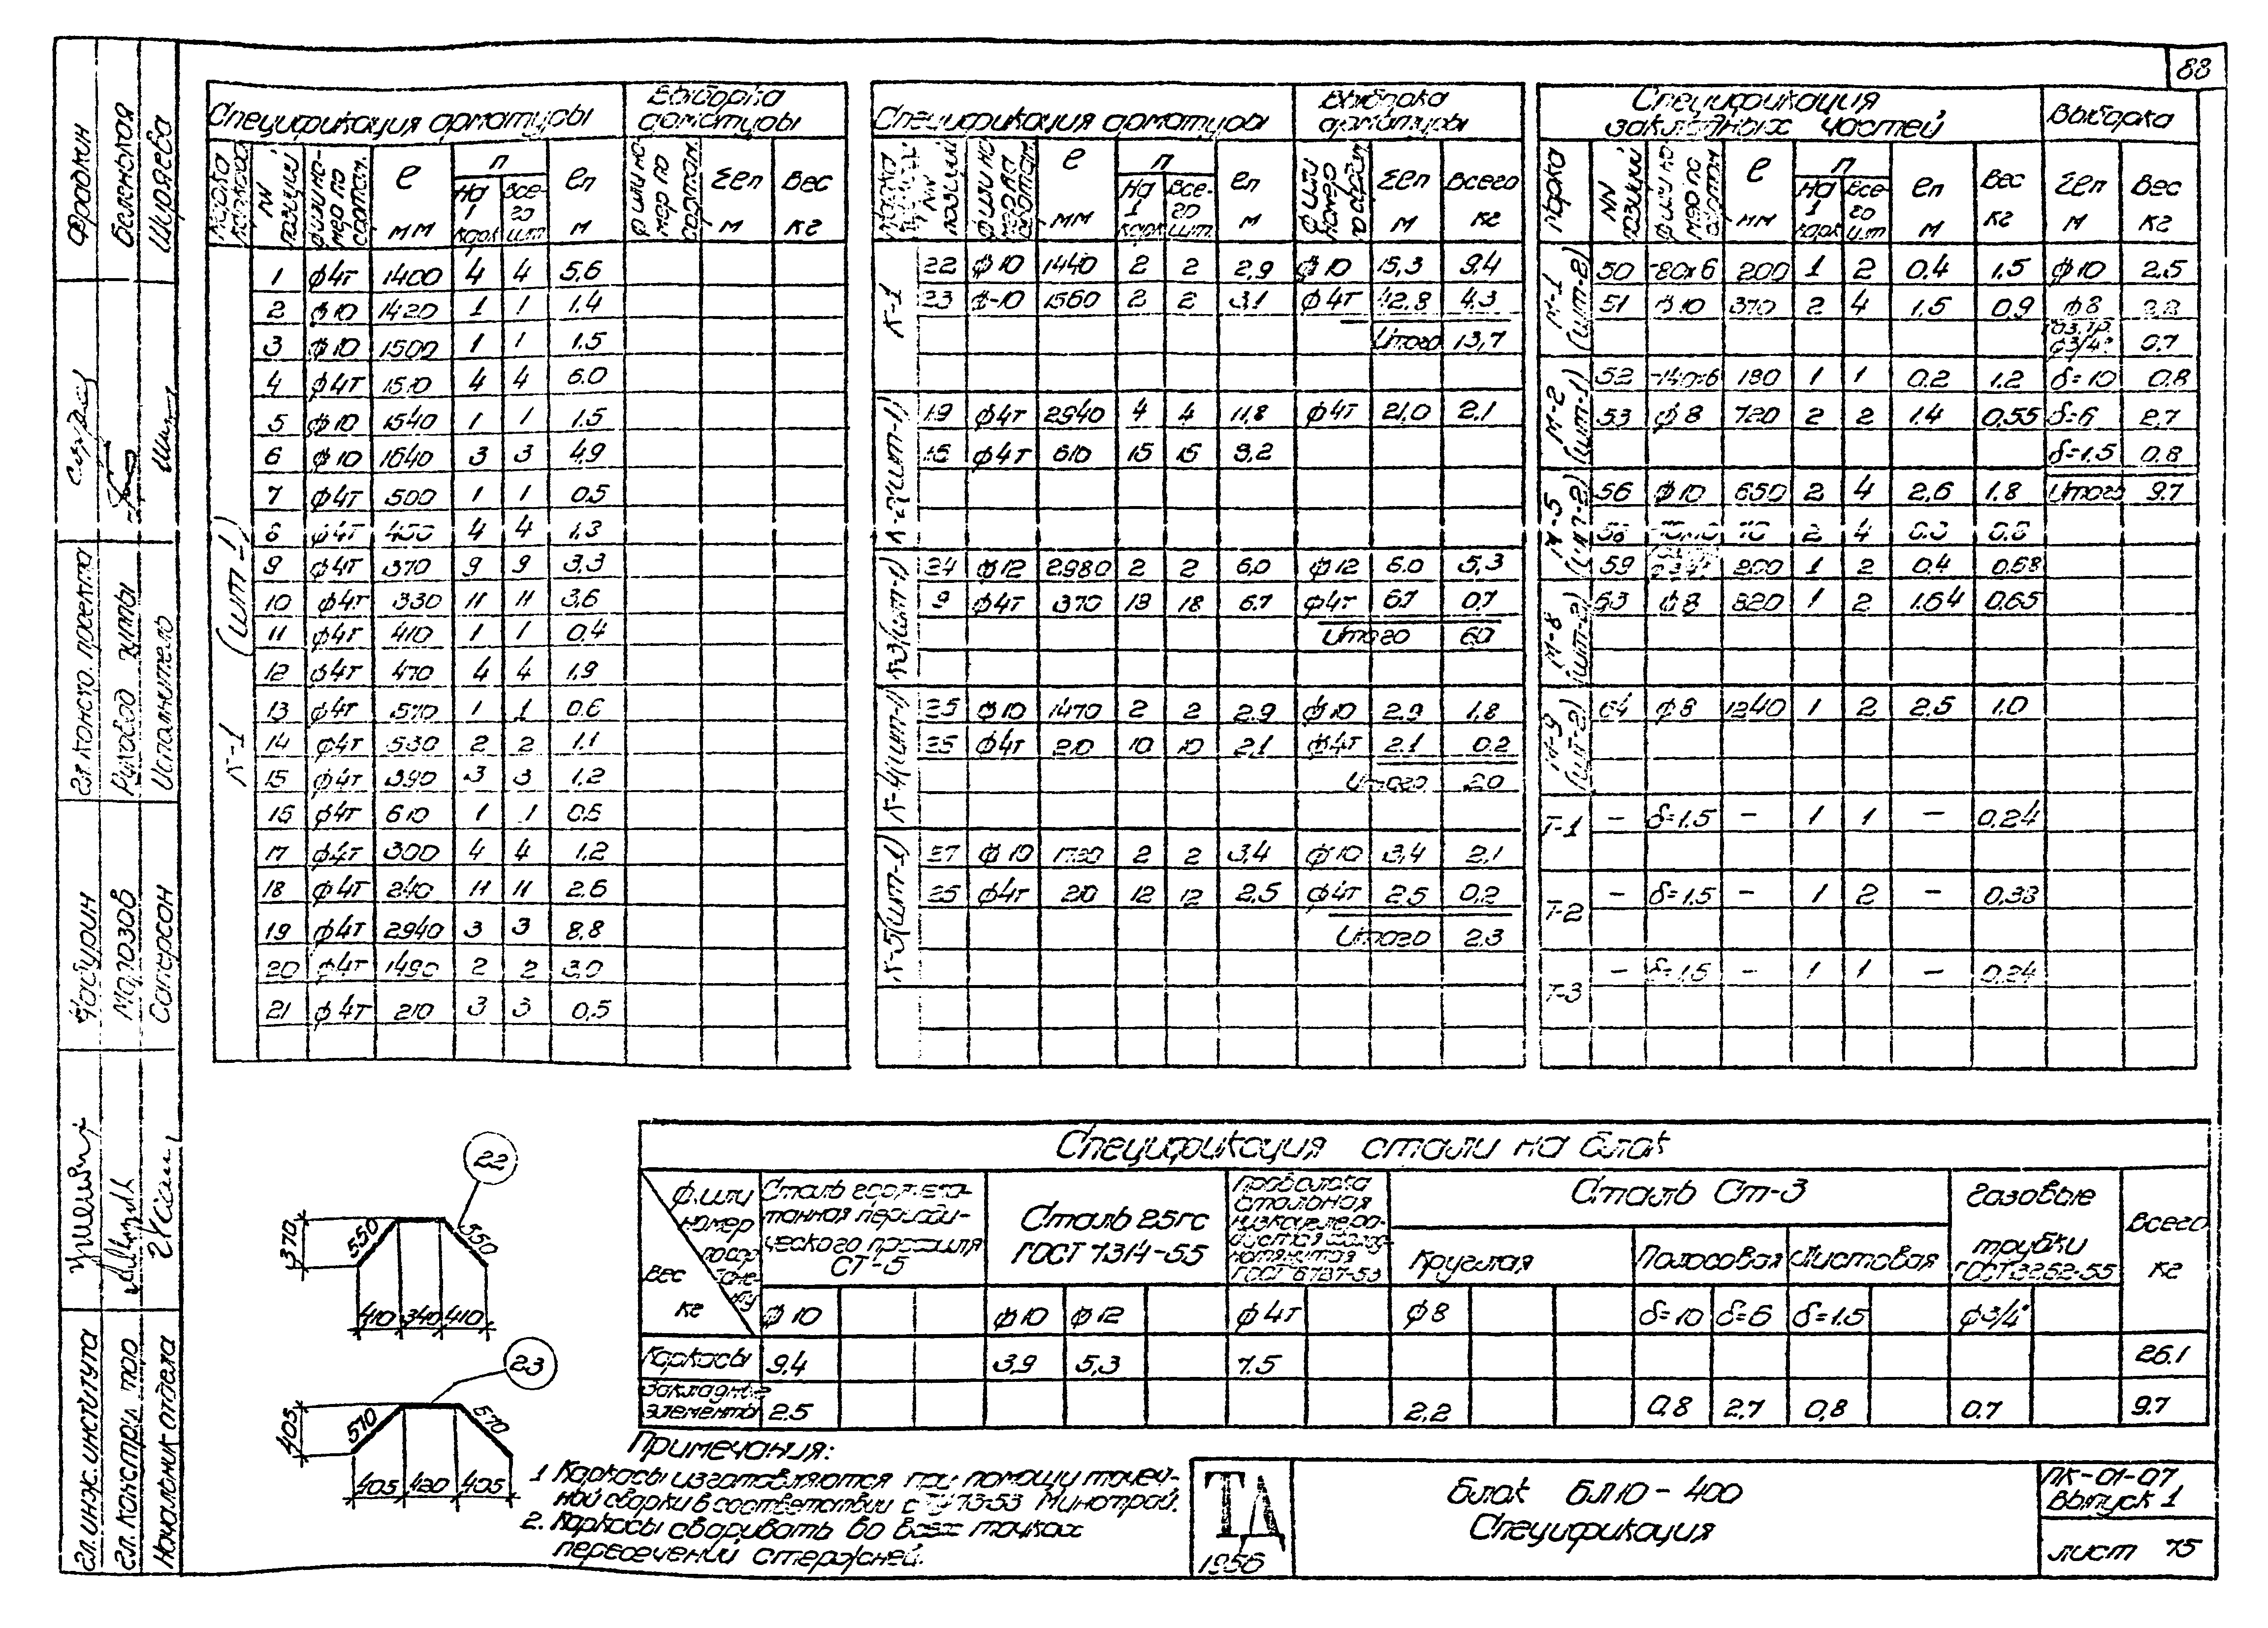 88
Спецификация арматуры
Выборка арматуры
Марка каркаса | NN позиций | ф или номер по сортам. | ℓ мм | п на 1 карк. | п всего шт. | ℓп м | ф или номер по сортам. | Σℓп м | Вес кг
К-1 (шт-1)
1 ф4т 1400 4 4 5,6
2 ф10 1420 1 1 1.4
3 ф10 1500 1 1 1.5
4 ф4т 1510 4 4 6.0
5 ф10 1540 1 1 1.5
6 ф10 1640 3 3 4,9
7 ф4т 500 1 1 0.5
8 ф4т 4 4 1,3
9 ф4т 370 9 9 3.3
10 ф4т 330 11 11 3,6
11 ф4т 410 1 1 0.4
12 ф4т 470 4 4 1,9
13 ф4т 570 1 1 0.6
14 ф4т 530 2 2 1.1
15 ф4т 390 3 3 1.2
16 ф4т 610 1 1 0.6
17 ф4т 300 4 4 1.2
18 ф4т 240 11 11 2.6
19 ф4т 2940 3 3 8,8
20 ф4т 1490 2 2 3.0
21 ф4т 210 3 3 0,5
Спецификация арматуры
Выборка арматуры
ℓ мм | п на 1 карк | п всего шт. | ℓп м | Σℓп м | всего кг
К-1
22 ф10 1440 2 2 2,9 ф10 15,3 9.4
23 ф10 1560 2 2 3,1 ф4т 42.8 4,3
Итого 13,7
К-2 (шт-1)
19 ф4т 2940 4 4 11,8 ф4т 21,0 2.1
16 ф4т 610 15 15 9,2
К-3 (шт-1)
24 ф12 2980 2 2 6,0 ф12 6.0 5,3
9 ф4т 370 18 18 6.7 ф4т 6.7 0.7
Итого 6.0
К-4 (шт-1)
25 ф10 1470 2 2 2.9 ф10 2.9 1.8
ф4т 210 10 10 2,1 ф4т 2.1 0.2
Итого 2.0
К-5 (шт-1)
27 ф10 2 2 3,4 ф10 3,4 2.1
ф4т 210 12 12 2,5 ф4т 2.5 0.2
Итого 2.3
Спецификация закладных частей
Выборка
Марка | NN позиций | ℓ мм | п на 1 карк | п всего шт | ℓп м | Вес кг | Σℓп м | Вес кг
М-1 (шт-2)
50 -80х6 200 1 2 0.4 1.5 ф10 2.5
51 ф10 370 2 4 1.5 0.9 ф8
ф3/4" 0.7
М-2 (шт-1)
52 -140х6 180 1 1 0.2 1.2 δ=10 0.8
53 ф8 720 2 2 1.4 0,55 δ=6 2,7
δ=1,5 0.8
М-5 (шт-2)
56 ф10 650 2 4 2,6 1.8 Итого 9.7
58 2 4
59 200 1 2 0.4 0.68
М-8 (шт-2)
63 ф8 820 1 2 1.64 0.65
М-9 (шт-2)
64 ф8 1240 1 2 2.5 1.0
Т-1 – δ=1.5 – 1 1 – 0,24
Т-2 – δ=1.5 – 1 2 – 0,33
Т-3 – δ=1,5 – 1 1 – 0,24
22
370
550 550
410 340 410
23
405
570 570
405 420 405
Спецификация стали на блок
ф или номер по сортаменту
Вес кг
Сталь горячекатанная периодического профиля СТ-5
Сталь 25гс ГОСТ 7314-55
Проволока стальная низкоуглеродистая холоднотянутая ГОСТ 6727-53
Сталь Ст-3
Круглая
Полосовая
Листовая
Газовые трубки ГОСТ 3262-55
Всего кг
ф10 ф10 ф12 ф4т ф8 δ=10 δ=6 δ=1.5 ф3/4"
Каркасы 9.4 3,9 5,3 7.5 26.1
Закладные элементы 2.5 2.2 0,8 2.7 0,8 0.7 9.7
Примечания:
1 Каркасы изготовляются при помощи точеч-
ной сварки в соответствии с ТУ 73-53 Минстрой.
2. Каркасы сваривать во всех точках
пересечений стержней.
ТД
1956
Блок БЛ10-400
Спецификация
ПК-01-07
Выпуск 1
лист 75
Фрадкин
Беленькая
Ширяева
Гл. констр. проекта
Руковод. группы
Исполнитель
Чабурин
Малозов
Саперсон
Гл. инж. института
Гл. констр.
Начальник отдела